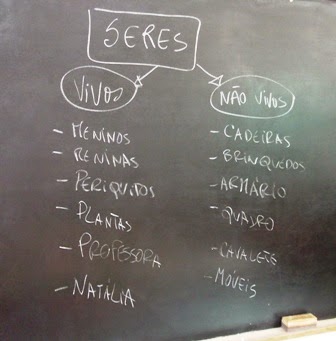 SERES
VIVOS
- MENINOS
- MENINAS
- PERIQUITOS
- PLANTAS
- PROFESSORA
- NATÁLIA
NÃO VIVOS
- CADEIRAS
- BRINQUEDOS
- ARMÁRIO
- QUADRO
- CAVALETE
- MÓVEIS